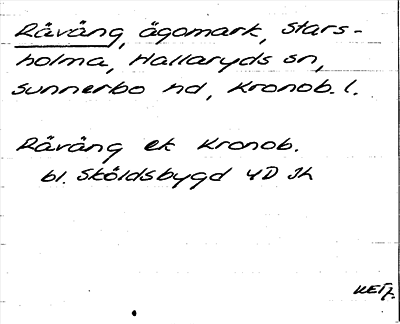 Råväng, ägomark, Stars-
holma, Hallaryds sn,
Sunnerbo hd, Kronob. l.
Råväng ek Kronob.
bl. Sköldsbygd 4D